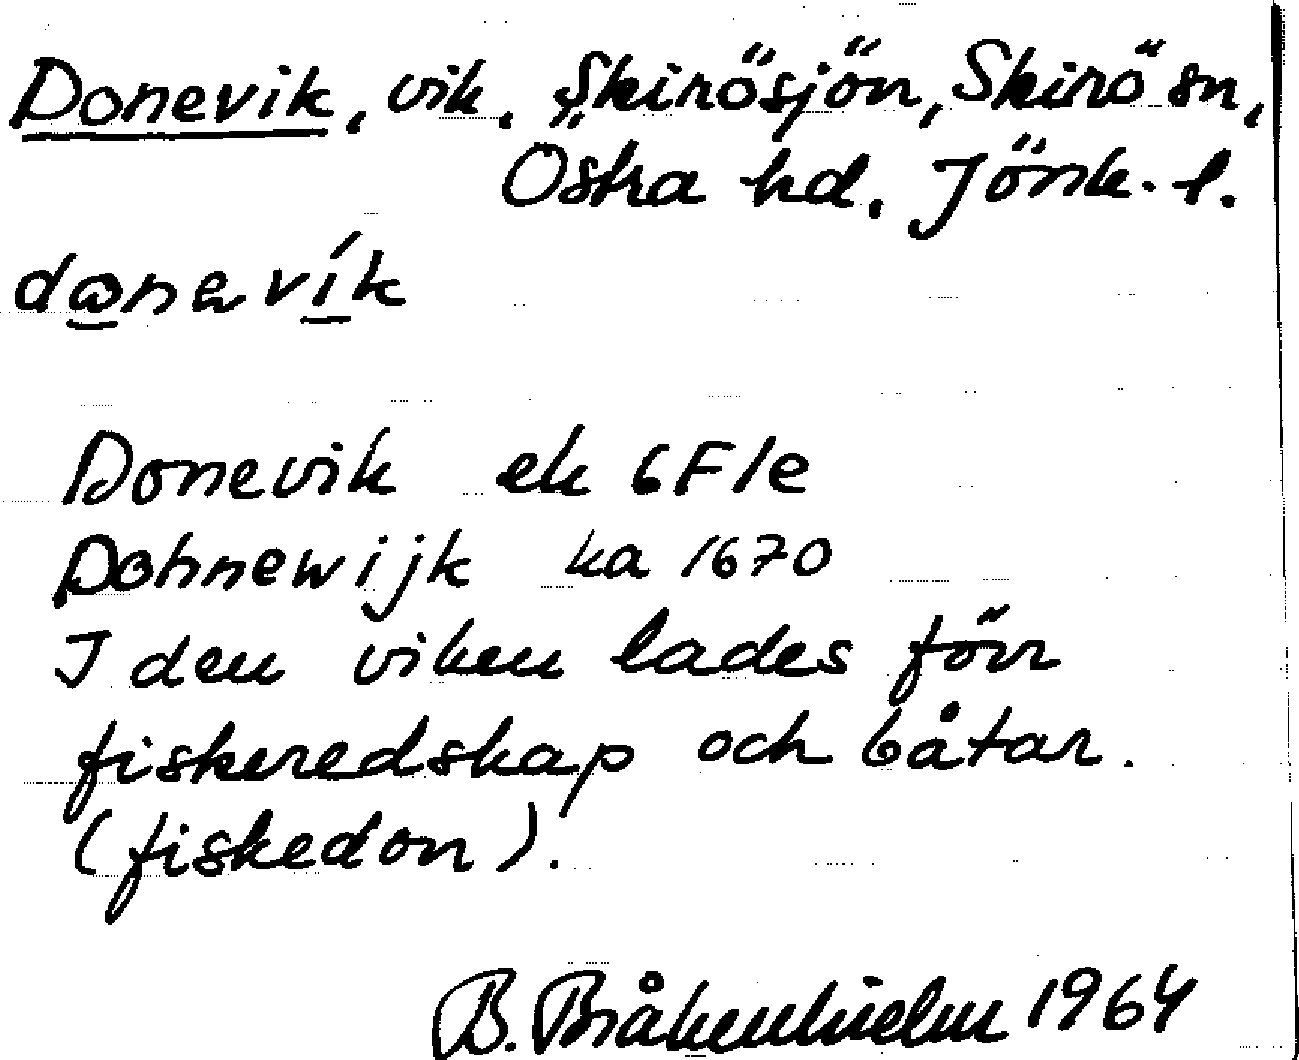 Donevik, vik. Skirösjön, Skirö sn,
Östra hd. Jönk. l.
donevík
Donevik ek 6F1e
Dohnewijk ka 1670
I den viken lades förr
fiskeredskap och båtar.
(fiskedon).
B. Bråkenhielm 1964